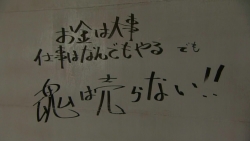 お金は大事
仕事はなんでもやる でも
魂は売らない!!